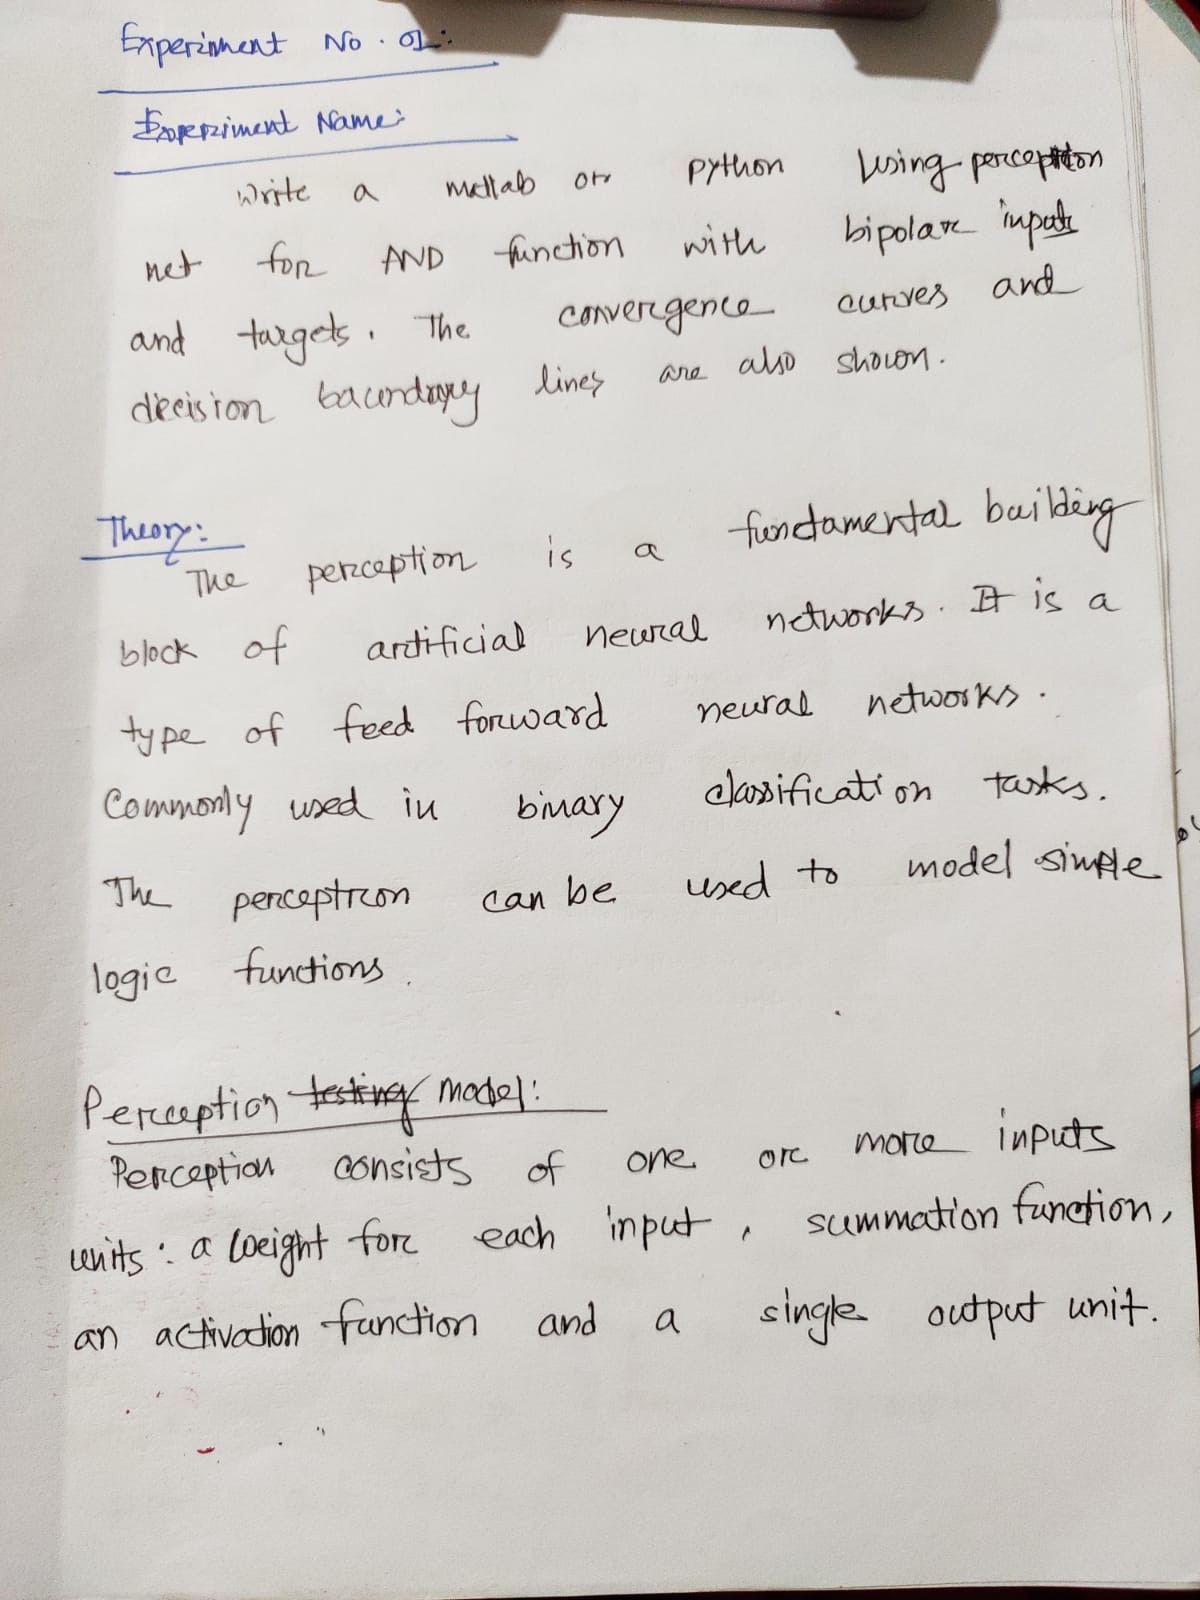 Experiment No. 01:
Experiment Name:
Write a matlab or python using perceptron
net for AND function with bipolar inputs
and targets. The convergence curves and
decision baundary lines are also shown.
Theory:
The perception is a fundamental building
block of artificial neural networks. It is a
type of feed forward neural networks.
Commonly used in binary classification tasks.
The perceptron can be used to model simple
logic functions.
Perception testing model:
Perception consists of one or more inputs
units: a weight for each input, summation function,
an activation function and a single output unit.